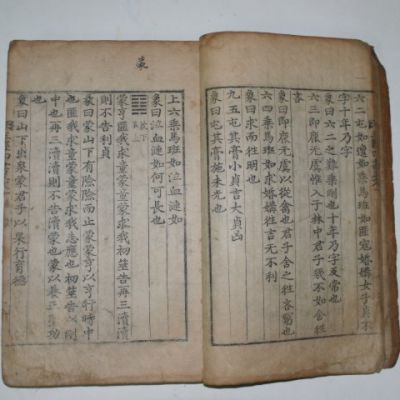 六二屯如邅如乘馬班如匪寇婚媾女子貞不
字十年乃字
象曰六二之難乘剛也十年乃字反常也
六三即鹿无虞惟入于林中君子幾不如舍往
吝
象曰即鹿无虞以從禽也君子舍之往吝窮也
六四乘馬班如求婚媾往吉无不利
象曰求而往明也
九五屯其膏小貞吉大貞凶
象曰屯其膏施未光也
上六乘馬班如泣血漣如
象曰泣血漣如何可長也
坎下
蒙亨匪我求童蒙童蒙求我初筮告再三瀆瀆
則不告利貞
彖曰蒙山下有險險而止蒙蒙亨以亨行時中
也匪我求童蒙童蒙求我志應也初筮告以剛
中也再三瀆瀆則不告瀆蒙也蒙以養正聖功
也
象曰山下出泉蒙君子以果行育德